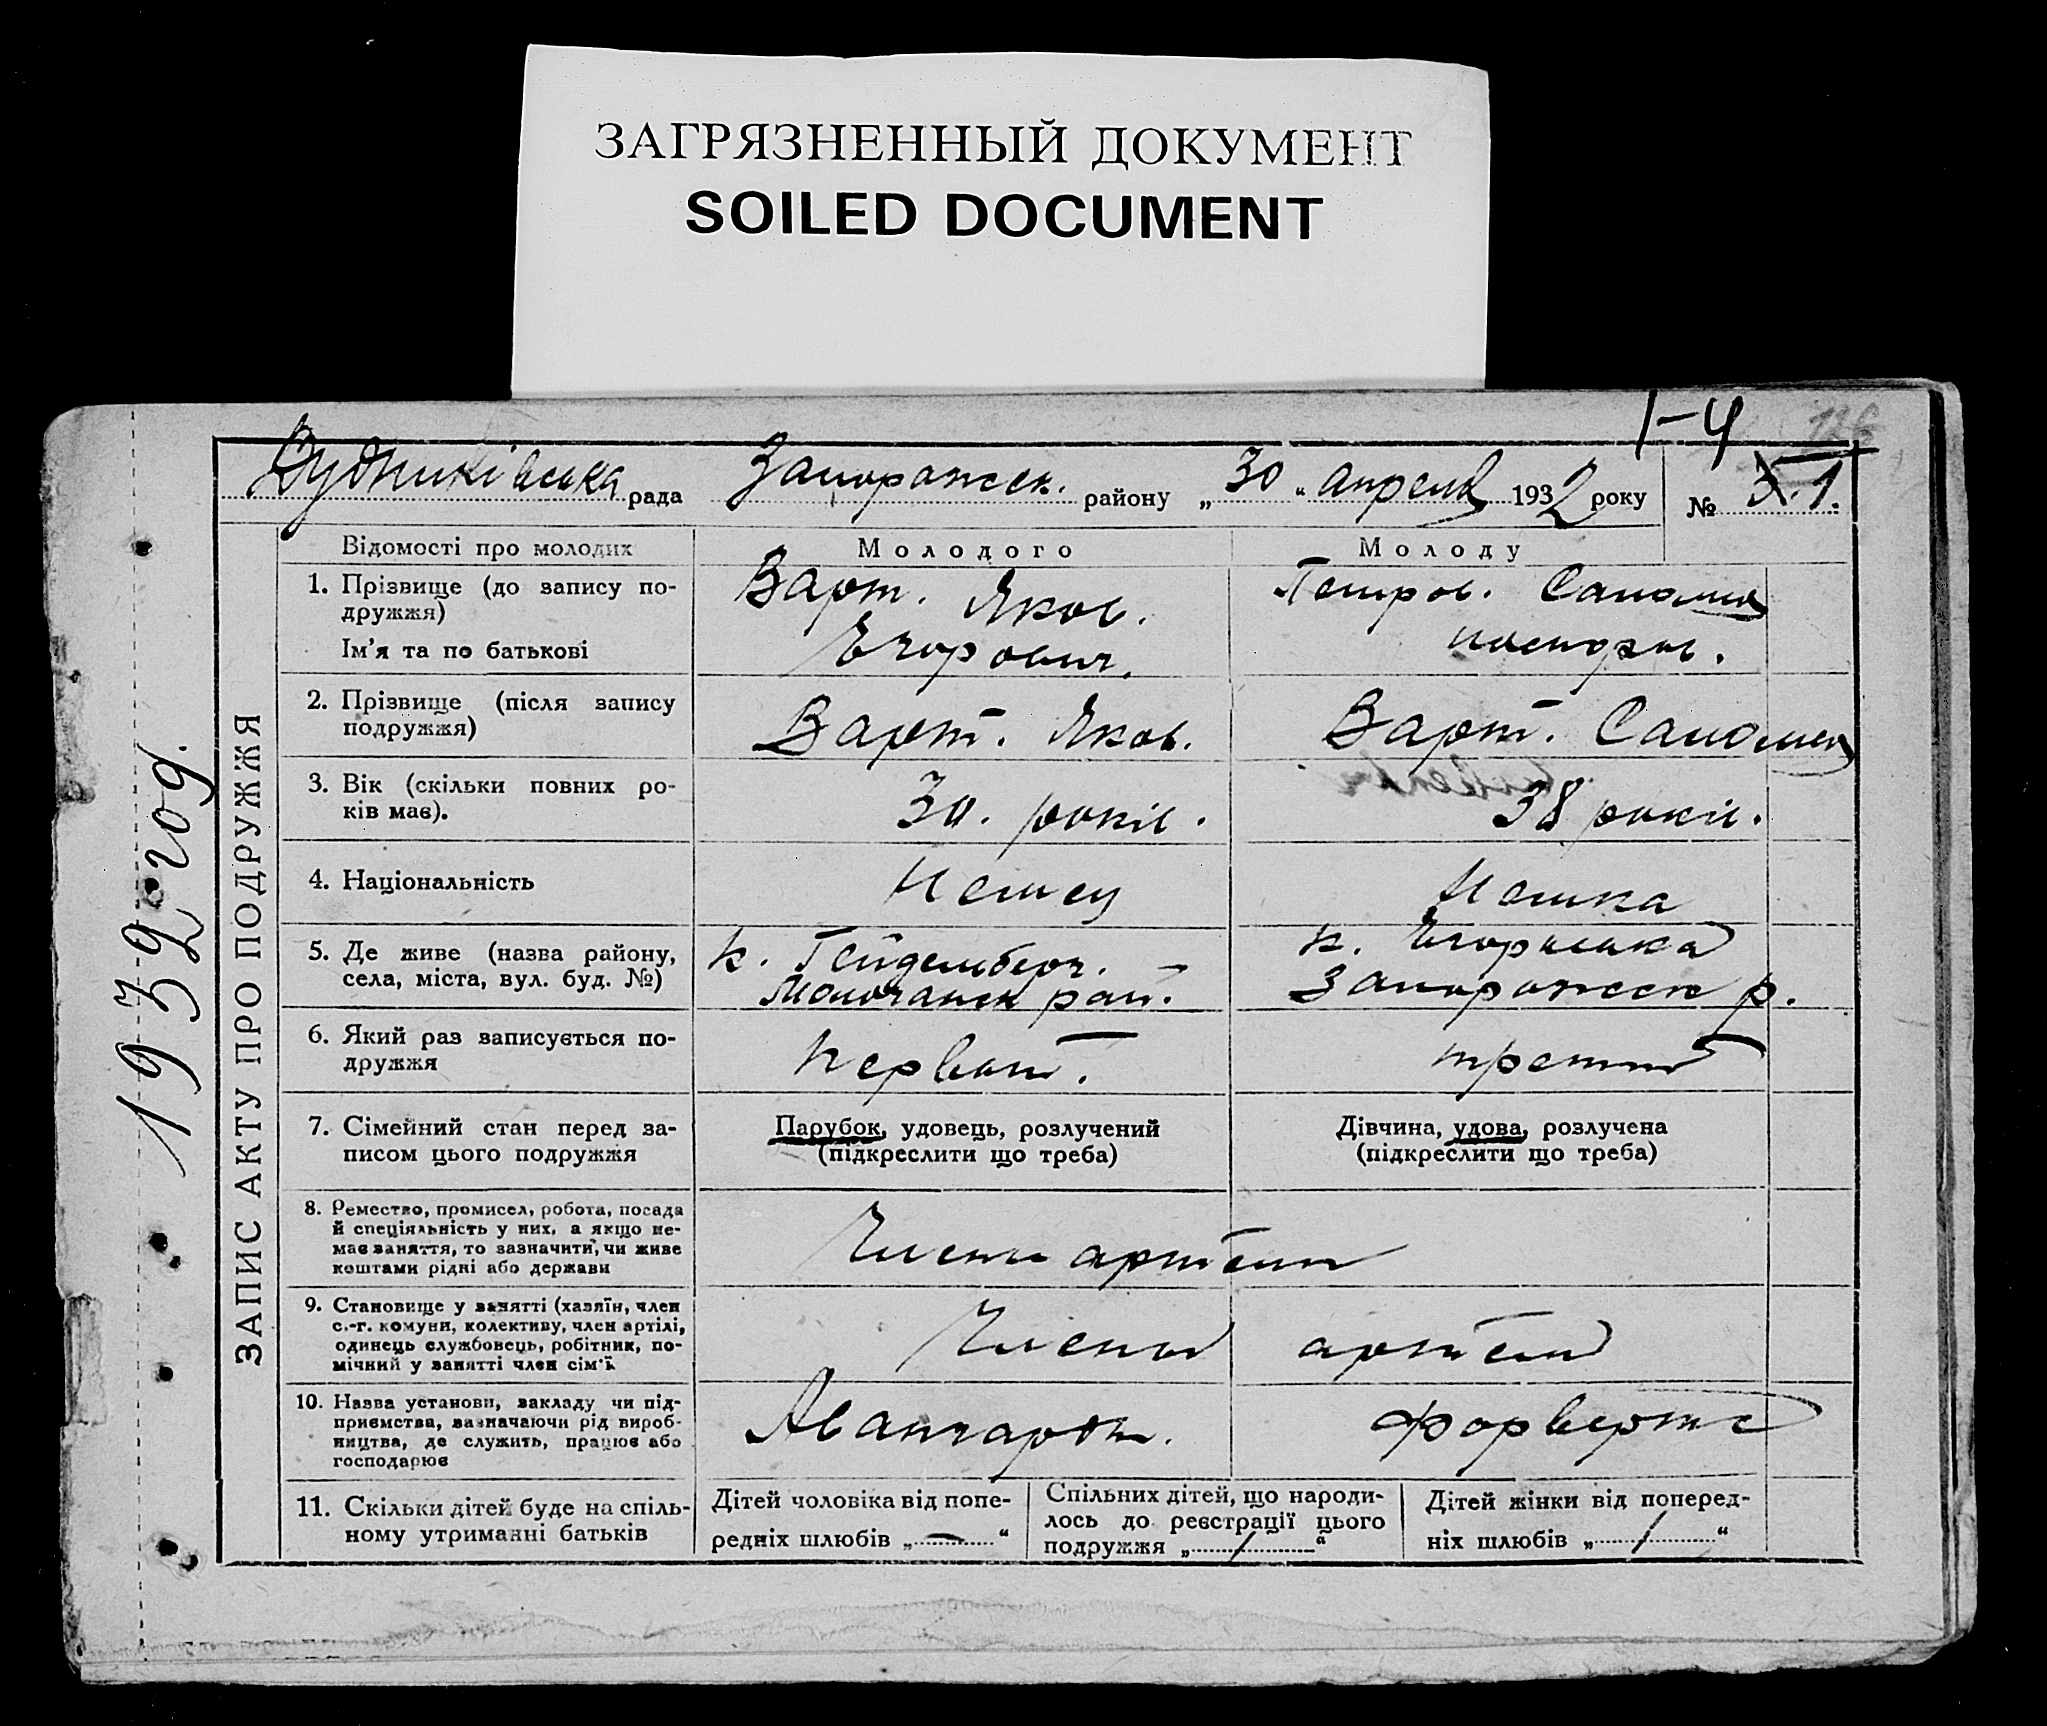 ЗАГРЯЗНЕННЫЙ ДОКУМЕНТ
SOILED DOCUMENT
1-4
рада Запорожск. району „30“ апреля 1932 року № 1.
1932 год.
ЗАПИС АКТУ ПРО ПОДРУЖЖЯ
Відомості про молодих Молодого Молоду
1. Прізвище (до запису по-
дружжя)
Ім'я та по батькові
Варт. Яков.
Егорович.
2. Прізвище (після запису
подружжя)
Варт. Яков. Варт.
3. Вік (скільки повних ро-
ків має).
30. років. 38 років.
4. Національність Немец Немка
5. Де живе (назва району,
села, міста, вул. буд. №)
к. Гейдельберг. –
Молочанск рай.
к.
Запорожск р.
6. Який раз записується по-
дружжя
Первый. третий
7. Сімейний стан перед за-
писом цього подружжя
Парубок, удовець, розлучений
(підкреслити що треба)
Дівчина, удова, розлучена
(підкреслити що треба)
8. Ремество, промисел, робота, посада
й спеціяльність у них, а якщо не-
має заняття, то зазначити, чи живе
коштами рідні або держави
Члены артели
9. Становище у занятті (хазяїн, член
с.-г. комуни, колективу, член артілі,
одинець службовець, робітник, по-
мічний у занятті член сім'ї
Члены артели
10. Назва установи, закладу чи під-
приємства, зазначаючи рід вироб-
ництва, де служить, працює або
господарює
Авангард. Форвертс
11. Скільки дітей буде на спіль-
ному утриманні батьків
Дітей чоловіка від попе-
редніх шлюбів „—“
Спільних дітей, що народи-
лось до реєстрації цього
подружжя „/“
Дітей жінки від поперед-
ніх шлюбів „/“